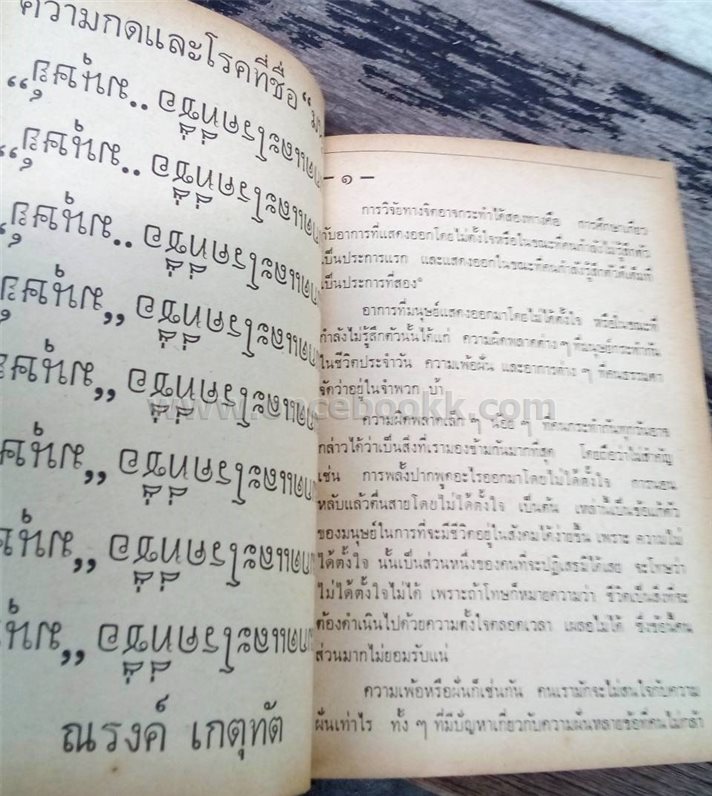 ความกดและโรคที่ชื่อ “มน
กดและโรคที่ชื่อ “มนุษย์”
กดและโรคที่ชื่อ “มนุษย์”
กดและโรคที่ชื่อ “มนุษย์
กดและโรคที่ชื่อ “มนุษย์
กดและโรคที่ชื่อ “มนุษย์
กดและโรคที่ชื่อ “มนุษ
กดและโรคที่ชื่อ “มนุษ
กดและโรคที่ชื่อ “มนุษ
ณรงค์ เกตุทัต
— ๑ —
การวิจัยทางจิตอาจกระทำได้สองทางคือ การศึกษาเกี่ยว
กับอาการที่แสดงออกโดยไม่ตั้งใจหรือในขณะที่คนกำลังไม่รู้สึกตัว
เป็นประการแรก และแสดงออกในขณะที่คนกำลังรู้สึกตัวดีเต็มที่
เป็นประการที่สอง
อาการที่มนุษย์แสดงออกมาโดยไม่ได้ตั้งใจ หรือในขณะที่
กำลังไม่รู้สึกตัวนั้นได้แก่ ความผิดพลาดต่าง ๆ ที่มนุษย์กระทำกัน
ในชีวิตประจำวัน ความเพ้อฝัน และอาการต่าง ๆ ที่คนธรรมดา
จัดว่าอยู่ในจำพวก บ้า
www.oncebookk.com
ความผิดพลาดเล็ก ๆ น้อย ๆ ที่คนกระทำกันทุกวันอาจ
กล่าวได้ว่าเป็นสิ่งที่เรามองข้ามกันมากที่สุด โดยถือว่าไม่สำคัญ
เช่น การพลั้งปากพูดอะไรออกมาโดยไม่ได้ตั้งใจ การนอน
หลับแล้วตื่นสายโดยไม่ได้ตั้งใจ เป็นต้น เหล่านี้เป็นข้อแก้ตัว
ของมนุษย์ในการที่จะมีชีวิตอยู่ในสังคมได้ง่ายขึ้น เพราะ ความไม่
ได้ตั้งใจ นั้นเป็นส่วนหนึ่งของคนที่จะปฏิเสธมิได้เลย จะโทษว่า
ไม่ได้ตั้งใจไม่ได้ เพราะถ้าโทษก็หมายความว่า ชีวิตเป็นสิ่งที่จะ
ต้องดำเนินไปด้วยความตั้งใจตลอดเวลา เผลอไม่ได้ ซึ่งข้อนี้คน
ส่วนมากไม่ยอมรับแน่
ความเพ้อหรือฝันก็เช่นกัน คนเรามักจะไม่สนใจกับความ
ฝันเท่าไร ทั้ง ๆ ที่มีปัญหาเกี่ยวกับความฝันหลายข้อที่คนไม่กล้า